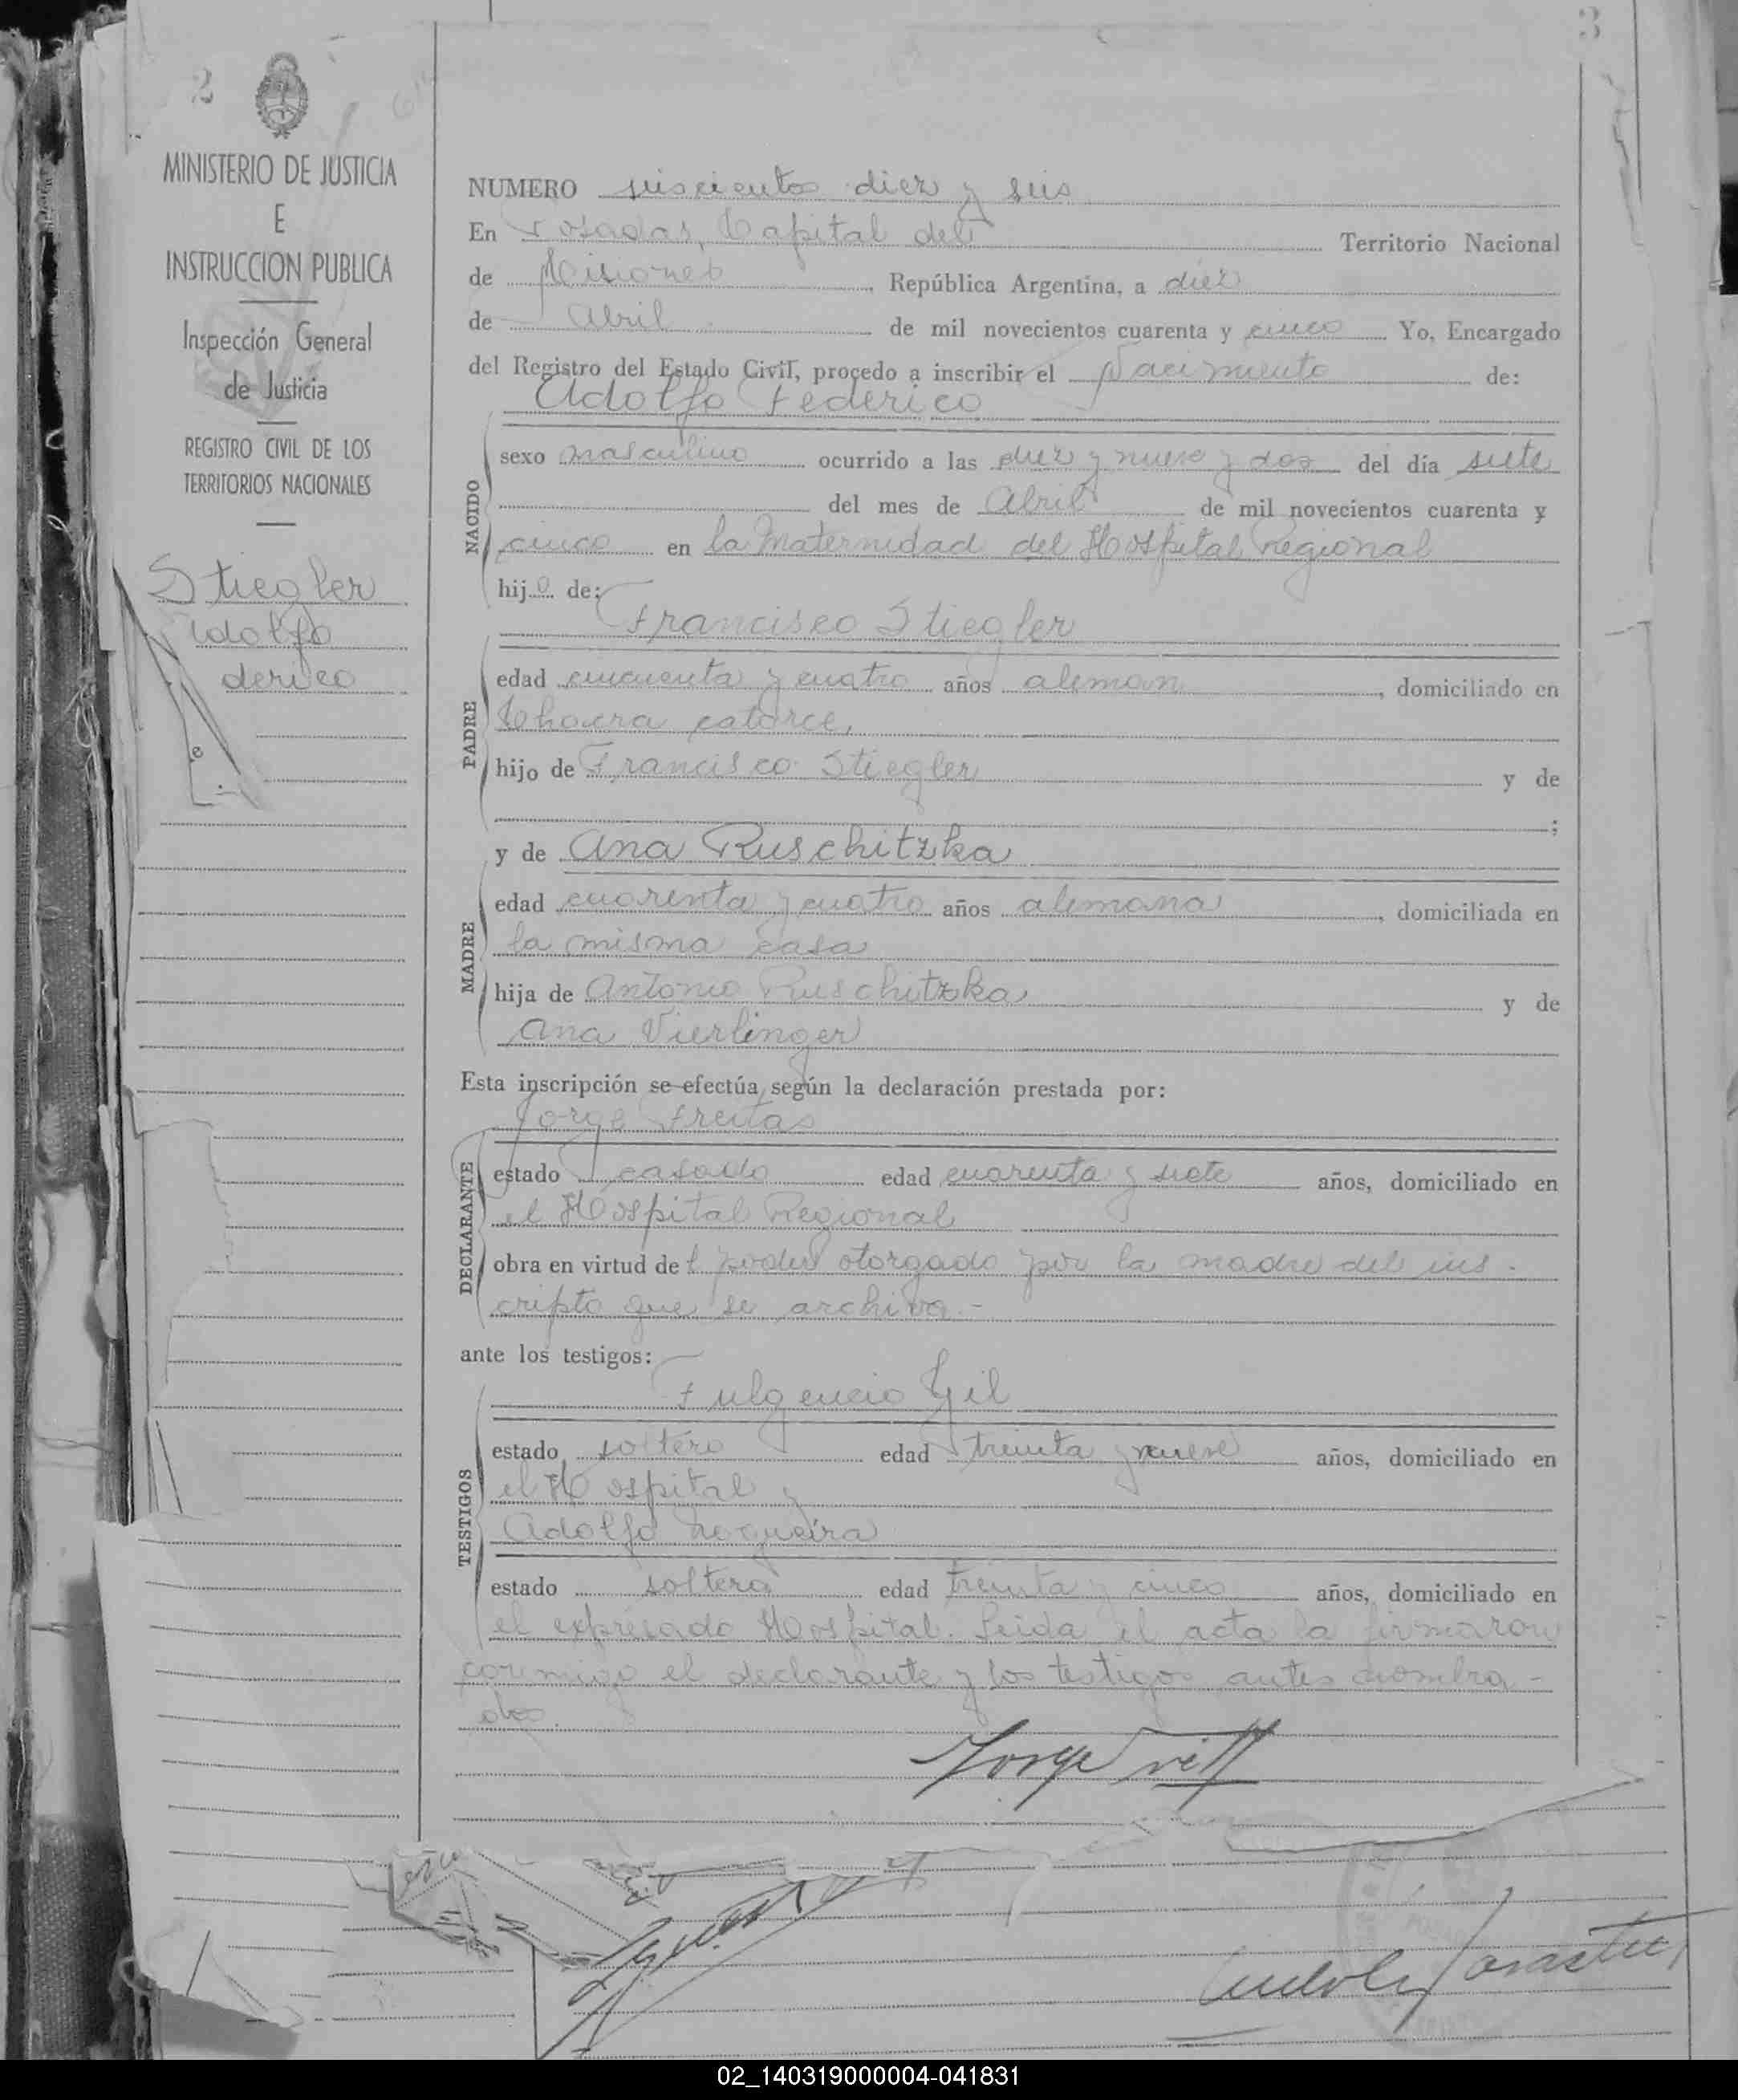 2
3
MINISTERIO DE JUSTICIA
E
INSTRUCCION PUBLICA
Inspección General
de Justicia
REGISTRO CIVIL DE LOS
TERRITORIOS NACIONALES
Stiegler
dolfo
derico
NUMERO seiscientos diez y seis
En Posadas, Capital del Territorio Nacional
de Misiones República Argentina, a diez
de Abril de mil novecientos cuarenta y cinco Yo, Encargado
del Registro del Estado Civil, procedo a inscribir el Nacimiento de:
Adolfo Federico
NACIDO
sexo masculino ocurrido a las diez y nueve y dos del día siete
del mes de Abril de mil novecientos cuarenta y
cinco en la Maternidad del Hospital Regional
hijo de:
Francisco Stiegler
PADRE
edad cincuenta y cuatro años aleman, domiciliado en
Chacra catorce,
hijo de Francisco Stiegler y de
;
y de Ana Ruschitzka
MADRE
edad cuarenta y cuatro años alemana, domiciliada en
la misma casa
hija de Antonio Ruschitzka y de
Ana Vierlinger
Esta inscripción se efectúa según la declaración prestada por:
Jorge Freitas
DECLARANTE
estado casado edad cuarenta y siete años, domiciliado en
el Hospital Regional
obra en virtud del poder otorgado por la madre del ins-
cripto que se archiva.-
ante los testigos:
Fulgencio Gil
TESTIGOS
estado soltero edad treinta y nueve años, domiciliado en
el Hospital y
Adolfo Nogueira
estado soltero edad treinta y cinco años, domiciliado en
el expresado Hospital. Leida el acta la firmaron
conmigo el declarante y los testigos antes nombra-
dos.
Jorge
02_140319000004-041831